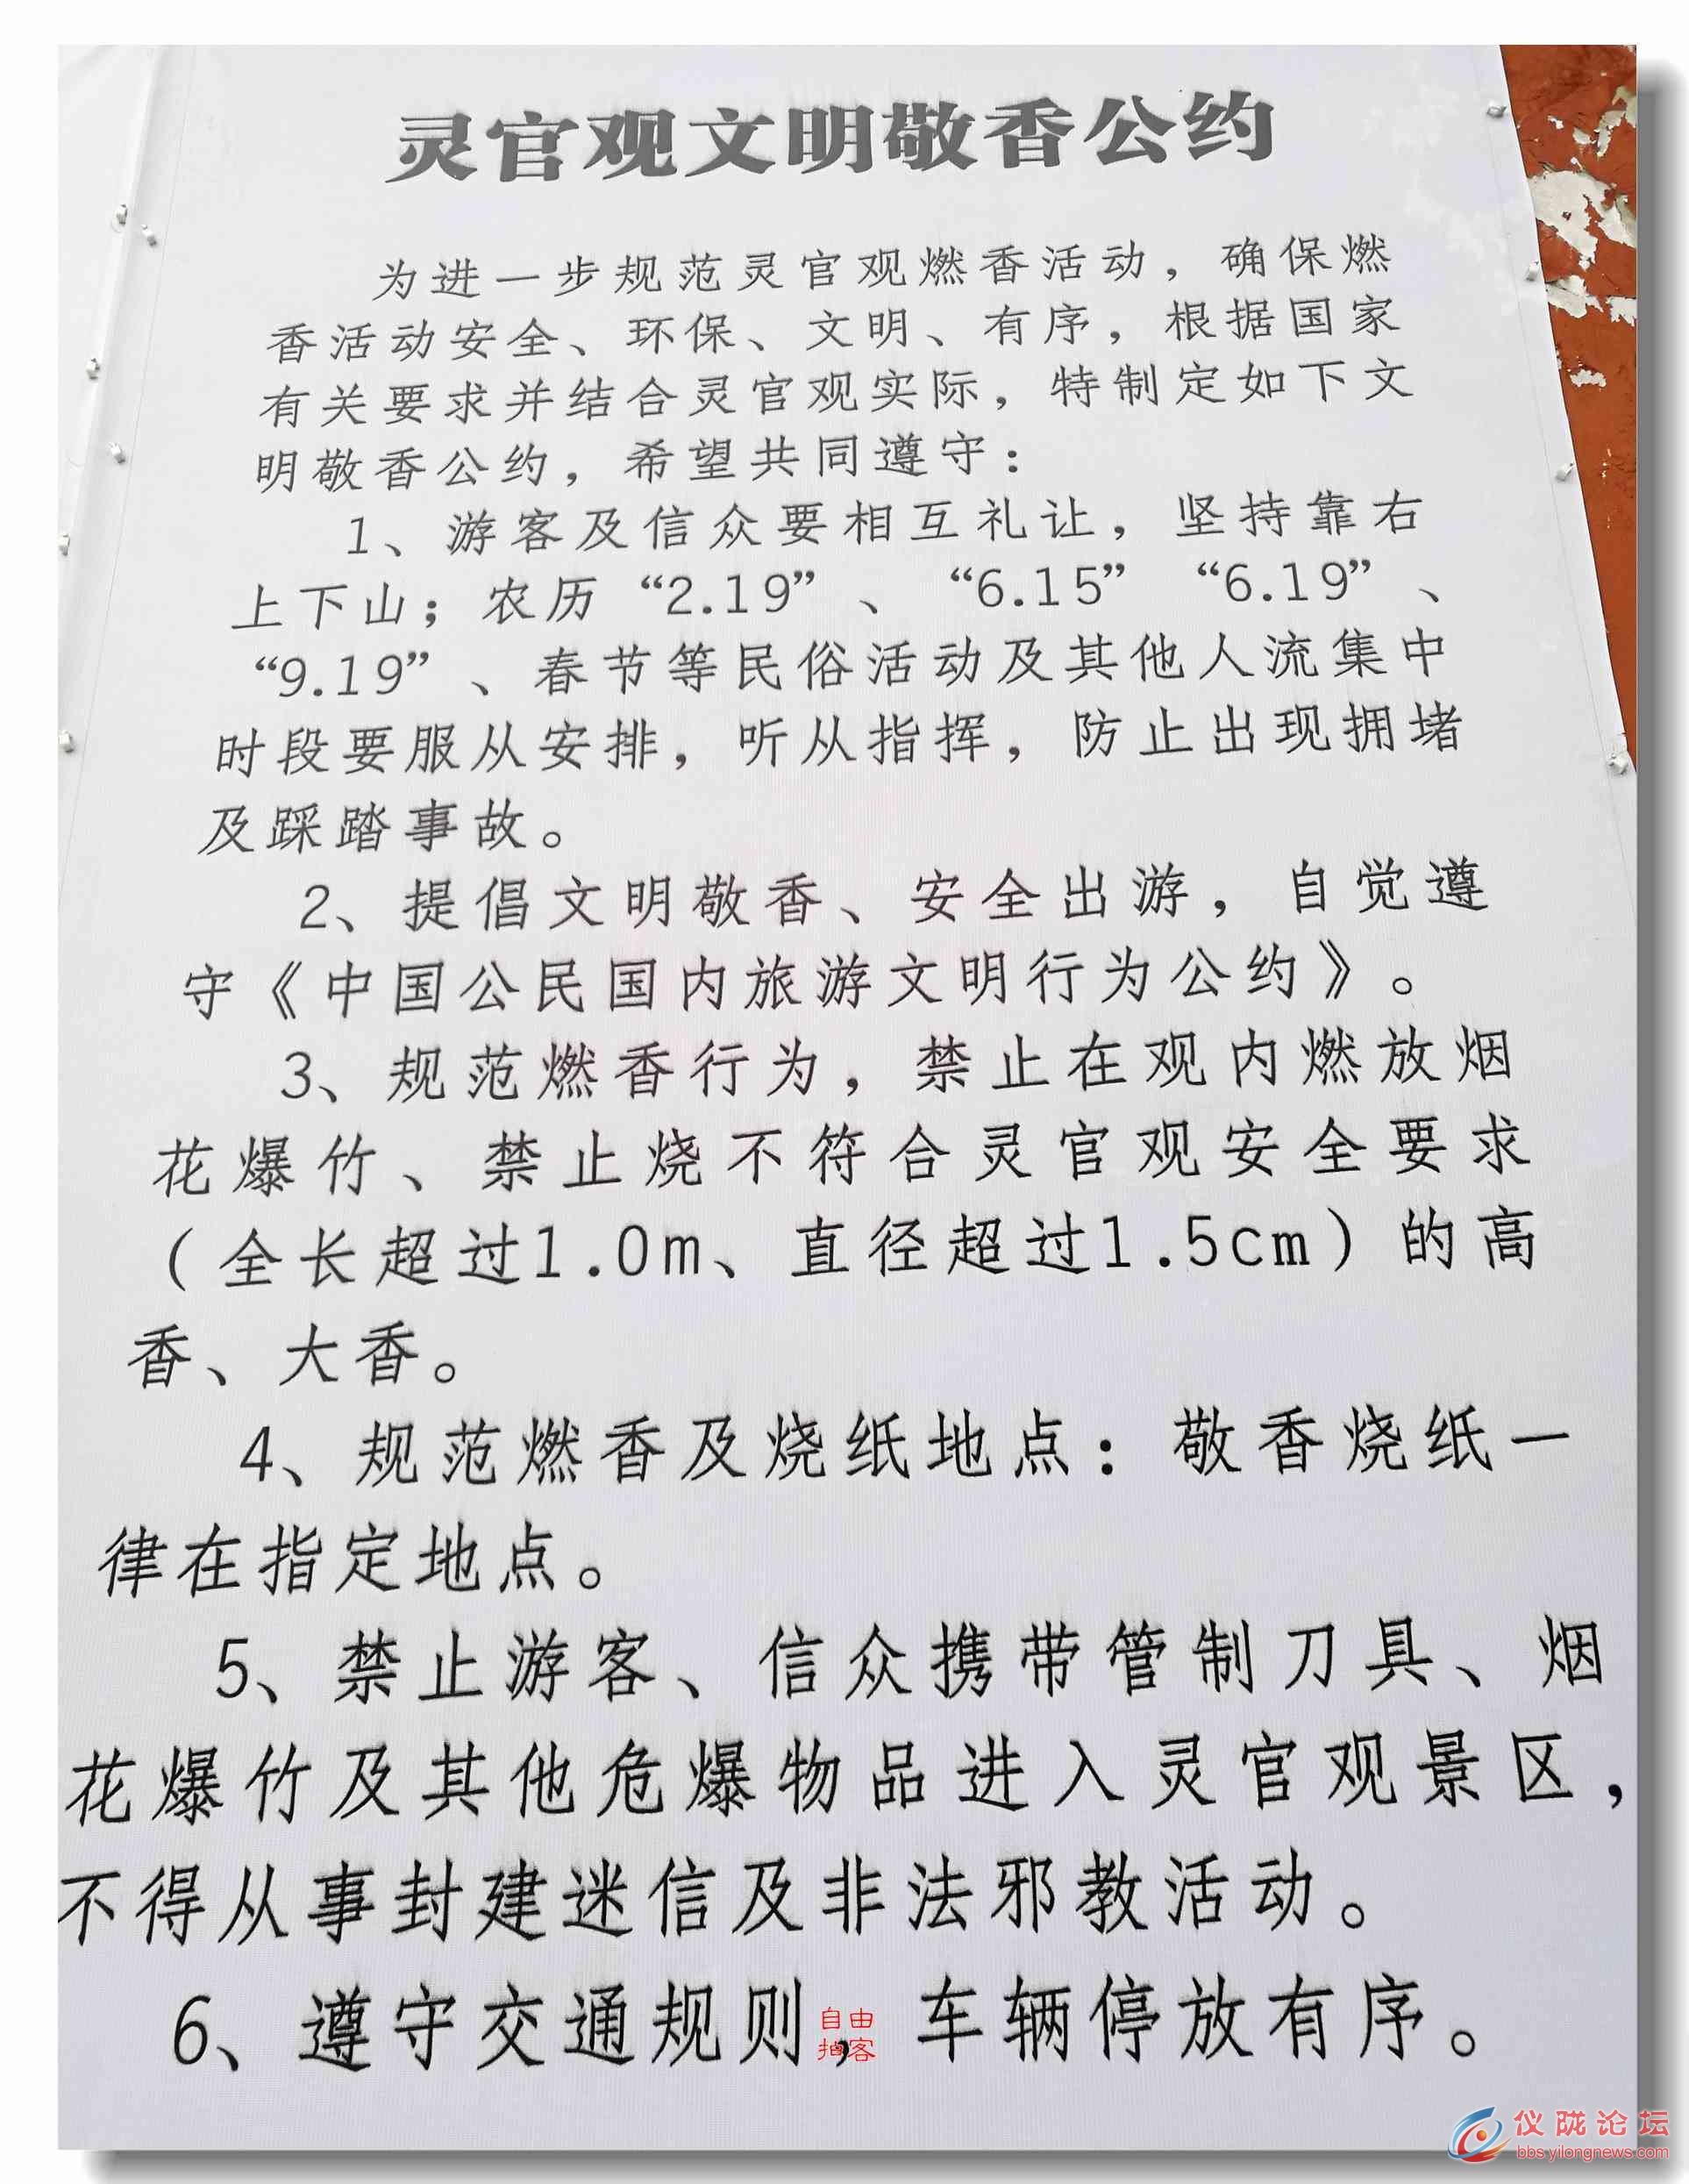 灵官观文明敬香公约
为进一步规范灵官观燃香活动，确保燃
香活动安全、环保、文明、有序，根据国家
有关要求并结合灵官观实际，特制定如下文
明敬香公约，希望共同遵守：
1、游客及信众要相互礼让，坚持靠右
上下山；农历“2.19”、“6.15”“6.19”、
“9.19”、春节等民俗活动及其他人流集中
时段要服从安排，听从指挥，防止出现拥堵
及踩踏事故。
2、提倡文明敬香、安全出游，自觉遵
守《中国公民国内旅游文明行为公约》。
3、规范燃香行为，禁止在观内燃放烟
花爆竹、禁止烧不符合灵官观安全要求
（全长超过1.0m、直径超过1.5cm）的高
香、大香。
4、规范燃香及烧纸地点：敬香烧纸一
律在指定地点。
5、禁止游客、信众携带管制刀具、烟
花爆竹及其他危爆物品进入灵官观景区，
不得从事封建迷信及非法邪教活动。
6、遵守交通规则，车辆停放有序。
自由
拍客
仪陇论坛
bbs.yilongnews.com